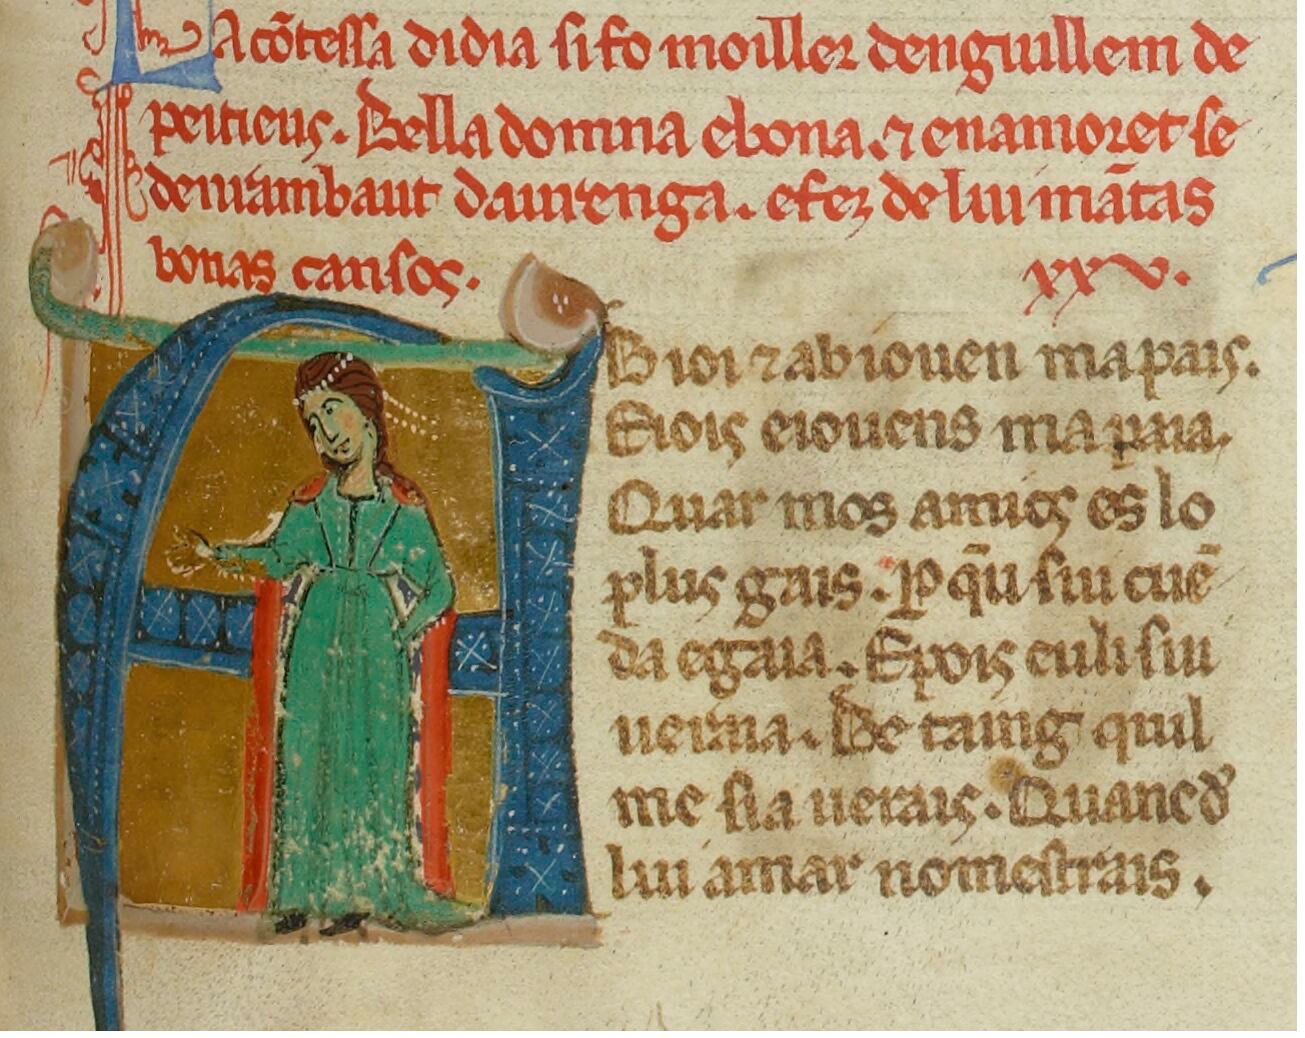 La cõtessa didia si fo moiller denguillem de
peitieus. Bella domna ebona. ⁊ enamoret se
denrambaut daurenga. efez de lui mãtas
bonas cansos. xxv.
AB ioi ⁊ ab iouen mapais.
Eiois eiouens mapaia.
Quar mos amics es lo
plus gais. Ꝑ q̃u sui cuẽ
da egaia. Epois euli sui
ueraia. Be taing quil
me sia uerais. Quancd̕
lui amar nomestrais.